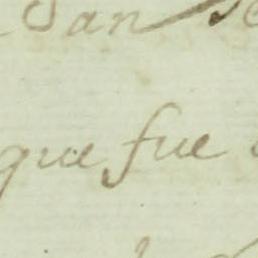 San
que fue